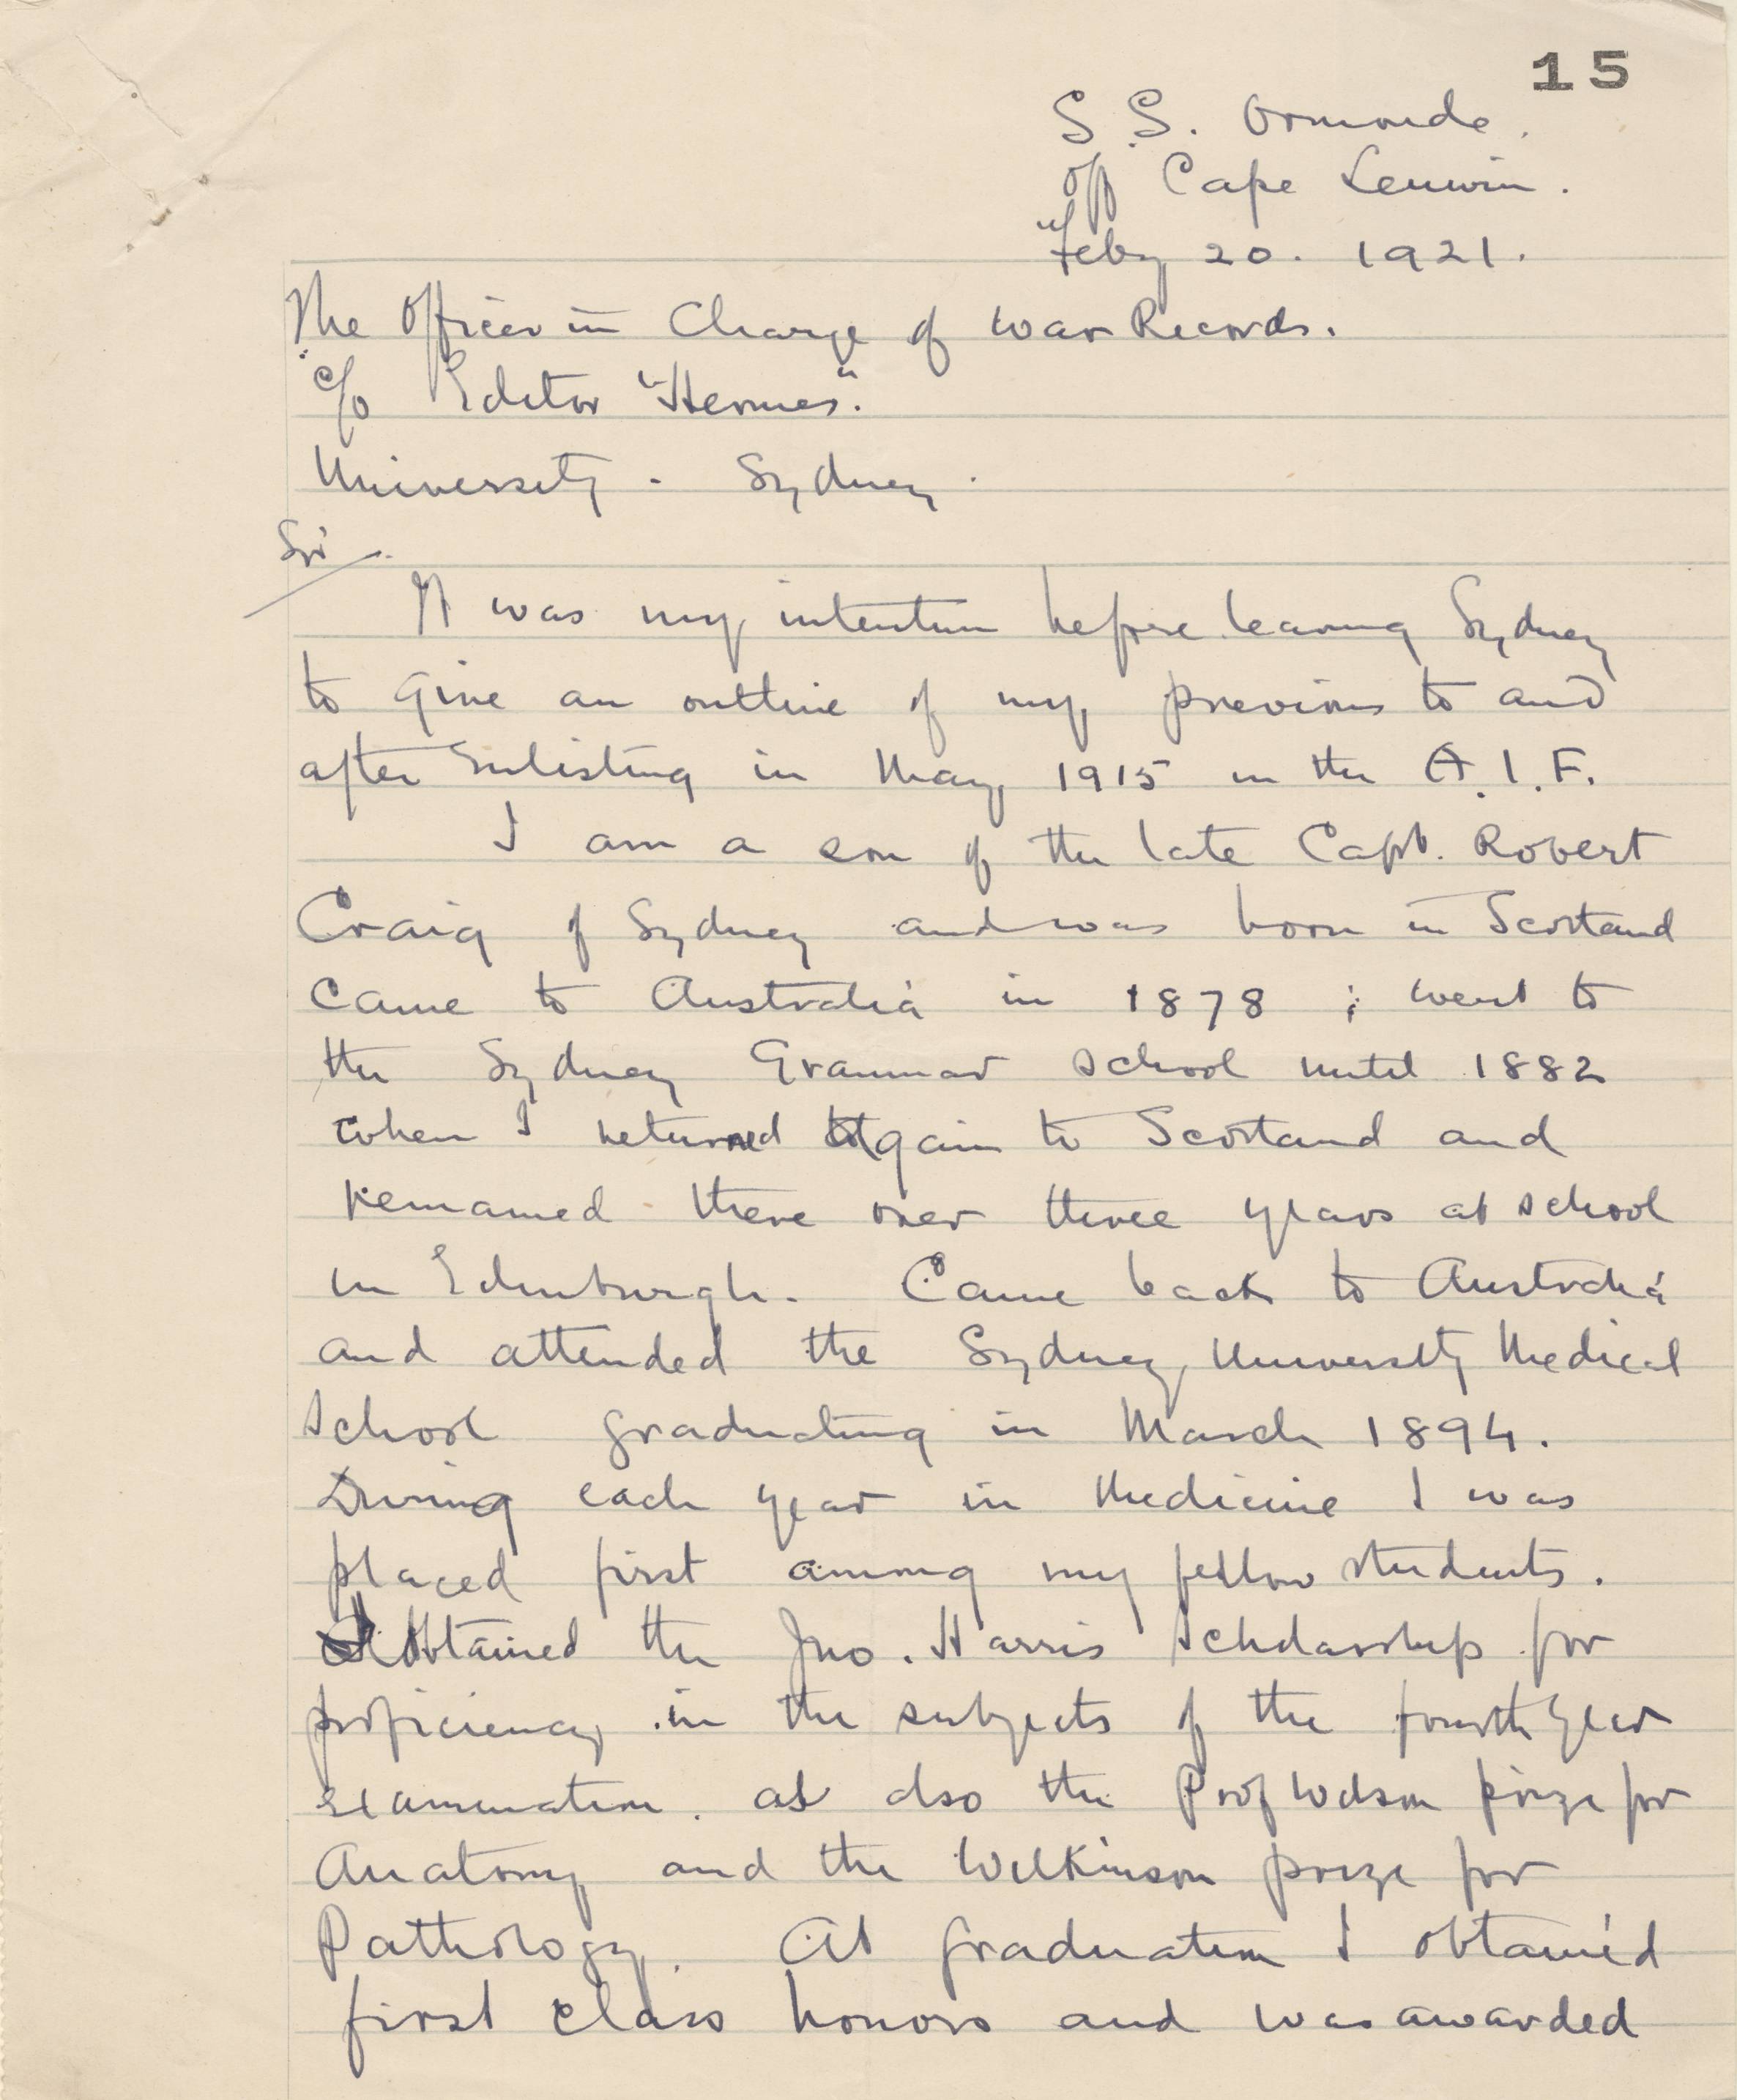 15
S.S. Ormonde.
off Cape Leuwin.
Feby 20. 1921.
The Officer in Charge of War Records.
c/o Editor "Hermes".
University - Sydney.
Sir
It was my intention before leaving Sydney
to give an outline of my previous to and
after enlisting in May 1915 in the A.I.F.
I am a son of the late Capt. Robert
Craig of Sydney and was born in Scotland
came to Australia in 1878 ; went to
the Sydney Grammar School until 1882
when I returned again to Scotland and
remained there over three years at school
in Edinburgh. Came back to Australia
and attended the Sydney University Medical
School graduating in March 1894.
During each year in Medicine I was
placed first among my fellow students.
Obtained the Jno. Harris Scholarship for
proficiency in the subjects of the fourth year
examination. as also the Prof Wilson prize for
Anatomy and the Wilkinson prize for
Pathology. At graduation I obtained
first class honors and was awarded